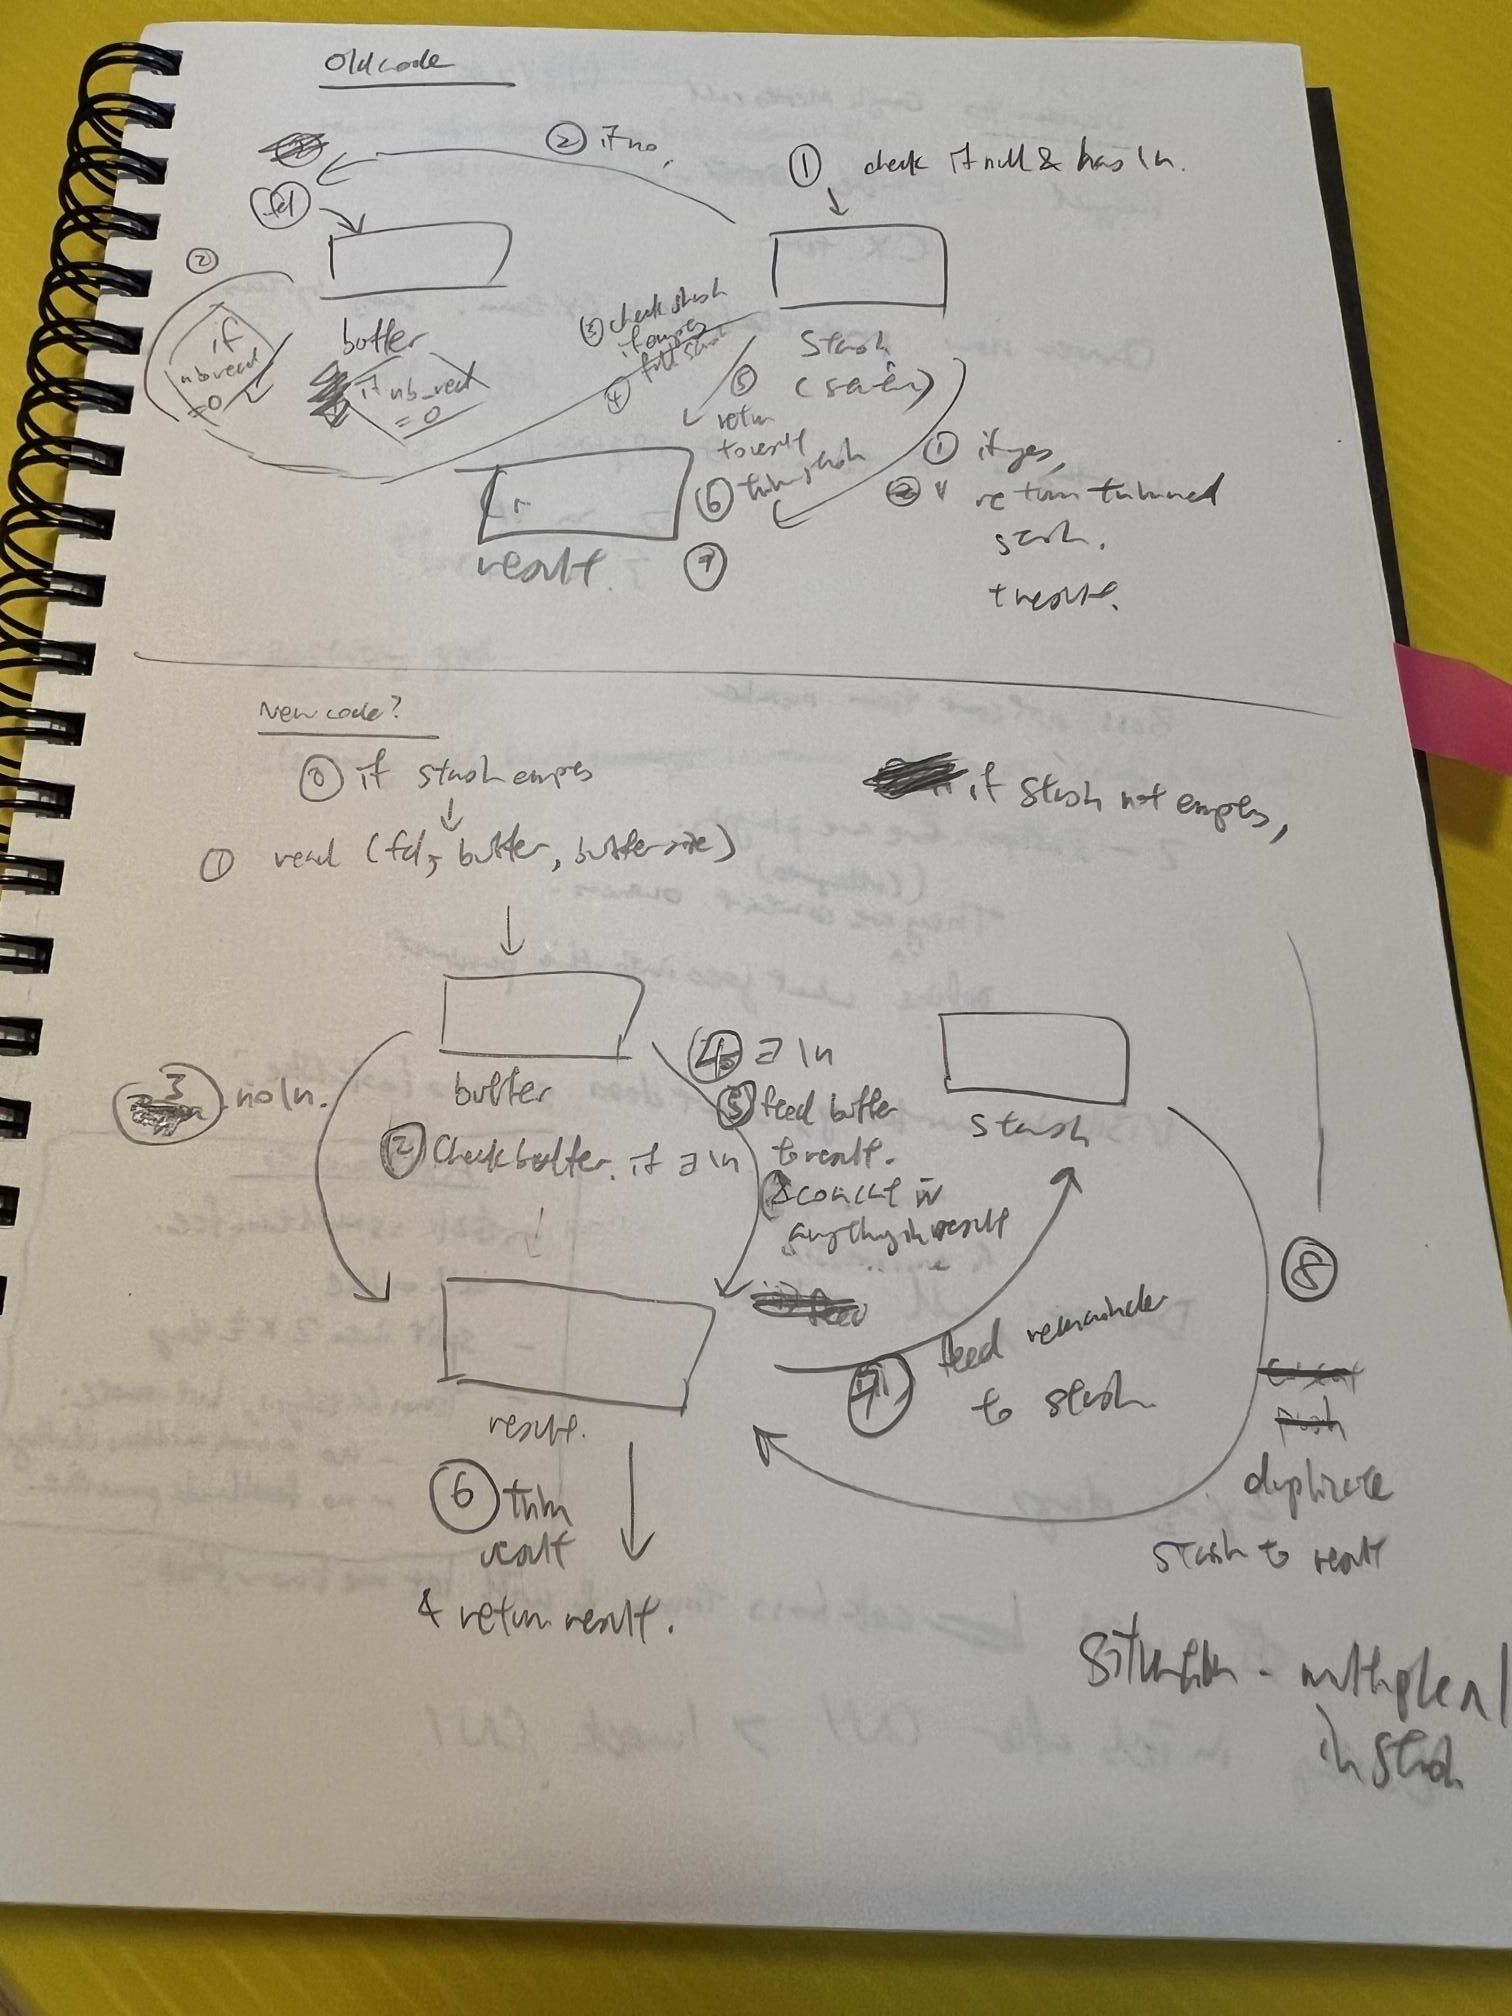 Old code
② if no,
① check if null & has \n.
fd
②
if
nb read
=0
buffer
if nb_read
= 0
③ check stash
if empty
④
stash
(saver)
⑤
return
to result
⑥ trim stash
⑦
result.
① if yes,
return trimmed
stash.
+ result.
New code?
⓪ if stash empty
if stash not empty,
① read (fd, buffer, buffersize)
buffer
3 no \n.
② Check buffer. if ∃ \n
④ ∃ \n
⑤ feed buffer
to result.
& concat w
anything in result
stash
⑦ feed remainder
to stash
result.
⑥ trim
result
& return result.
⑧
push
duplicate
stash to result
situation - multiple \n
in stash